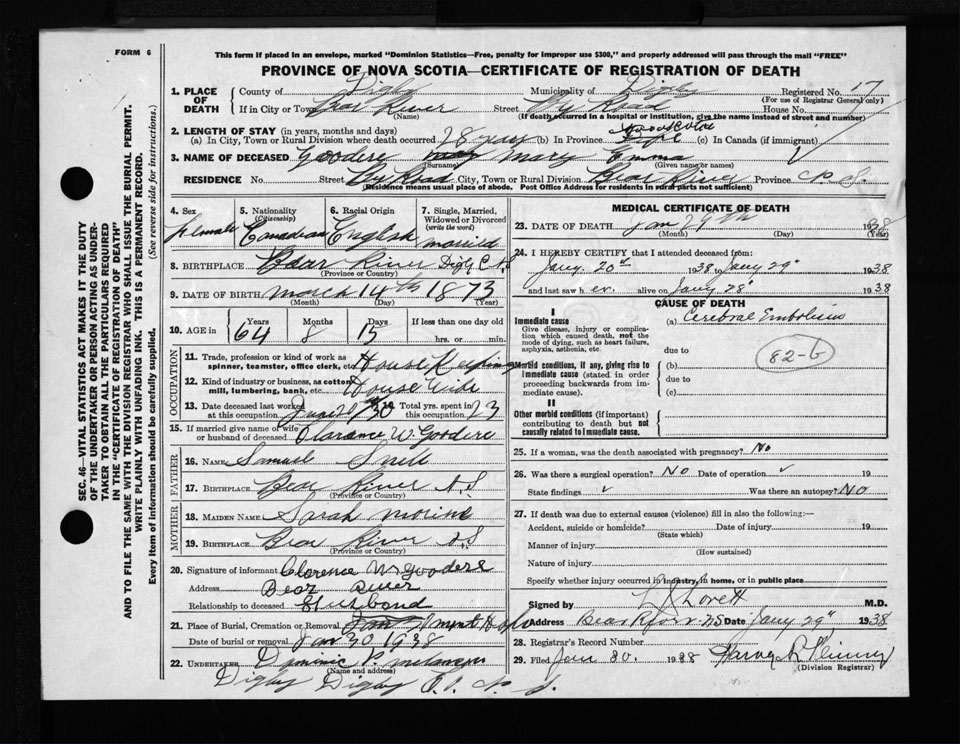 FORM 6
This form if placed in an envelope, marked "Dominion Statistics—Free, penalty for improper use $300," and properly addressed will pass through the mail "FREE"
PROVINCE OF NOVA SCOTIA—CERTIFICATE OF REGISTRATION OF DEATH
1. PLACE OF DEATH County of Digby Municipality of Digby Registered No. 17
(For use of Registrar General only)
If in City or Town Bear River Street By Road House No.
(Name) (If death occurred in a hospital or institution, give the name instead of street and number)
2. LENGTH OF STAY (in years, months and days)
(a) In City, Town or Rural Division where death occurred 28 years (b) In Province Life (c) In Canada (if immigrant)
3. NAME OF DECEASED Goodere Mary Emma
(Surname) (Given name or names)
RESIDENCE No. Street By Road City, Town or Rural Division Bear River Province N. S.
(Residence means usual place of abode. Post Office Address for residents in rural parts not sufficient)
4. Sex Female
5. Nationality (Citizenship) Canadian
6. Racial Origin English
7. Single, Married, Widowed or Divorced (write the word) married
8. BIRTHPLACE Bear River Digby Co
(Province or Country)
9. DATE OF BIRTH March 14th 1873
(Month) (Day) (Year)
10. AGE in Years Months Days If less than one day old
64 8 15 hrs. or min.
OCCUPATION
11. Trade, profession or kind of work as spinner, teamster, office clerk, etc. House Keeping
12. Kind of industry or business, as cotton mill, lumbering, bank, etc. House Wife
13. Date deceased last worked at this occupation June 20 Total yrs. spent in this occupation 23
15. If married give name of wife or husband of deceased Clarence W. Goodere
FATHER
16. NAME Samuel Snell
17. BIRTHPLACE Bear River N.S
(Province or Country)
MOTHER
18. MAIDEN NAME Sarah Morine
19. BIRTHPLACE Bear River N.S
(Province or Country)
20. Signature of informant Clarence W. Goodere
Address Bear River
Relationship to deceased Husband
21. Place of Burial, Cremation or Removal
Date of burial or removal Jan 30 1938
22. UNDERTAKER Dominic P. Melanson
(Name and address)
Digby Digby Co. N. S.
MEDICAL CERTIFICATE OF DEATH
23. DATE OF DEATH Jan 29th 1938
(Month) (Day) (Year)
24. I HEREBY CERTIFY that I attended deceased from:
Jany. 20th 1938 to Jany 29" 1938
and last saw her alive on Jany 28" 1938
CAUSE OF DEATH
I
Immediate cause (a) Cerebral Embolism
Give disease, injury or complication which caused death, not the mode of dying, such as heart failure, asphyxia, asthenia, etc.
due to
82-b
Morbid conditions, if any, giving rise to immediate cause (stated in order proceeding backwards from immediate cause).
(b)
due to
(c)
II
Other morbid conditions (if important) contributing to death but not causally related to immediate cause.
25. If a woman, was the death associated with pregnancy? No
26. Was there a surgical operation? No Date of operation 19
State findings Was there an autopsy? No
27. If death was due to external causes (violence) fill in also the following:—
Accident, suicide or homicide? Date of injury 19
(State which)
Manner of injury
(How sustained)
Nature of injury
Specify whether injury occurred in industry, in home, or in public place
Signed by Lovett M.D.
Address Bear River NS Date Jany 29" 1938
28. Registrar's Record Number
29. Filed Jan 30. 1938 Harvey
(Division Registrar)
SEC. 46—VITAL STATISTICS ACT MAKES IT THE DUTY
OF THE UNDERTAKER OR PERSON ACTING AS UNDER-
TAKER TO OBTAIN ALL THE PARTICULARS REQUIRED
IN THE "CERTIFICATE OF REGISTRATION OF DEATH"
AND TO FILE THE SAME WITH THE DIVISION REGISTRAR WHO SHALL ISSUE THE BURIAL PERMIT.
WRITE PLAINLY WITH UNFADING INK. THIS IS A PERMANENT RECORD.
Every item of information should be carefully supplied. (See reverse side for instructions.)